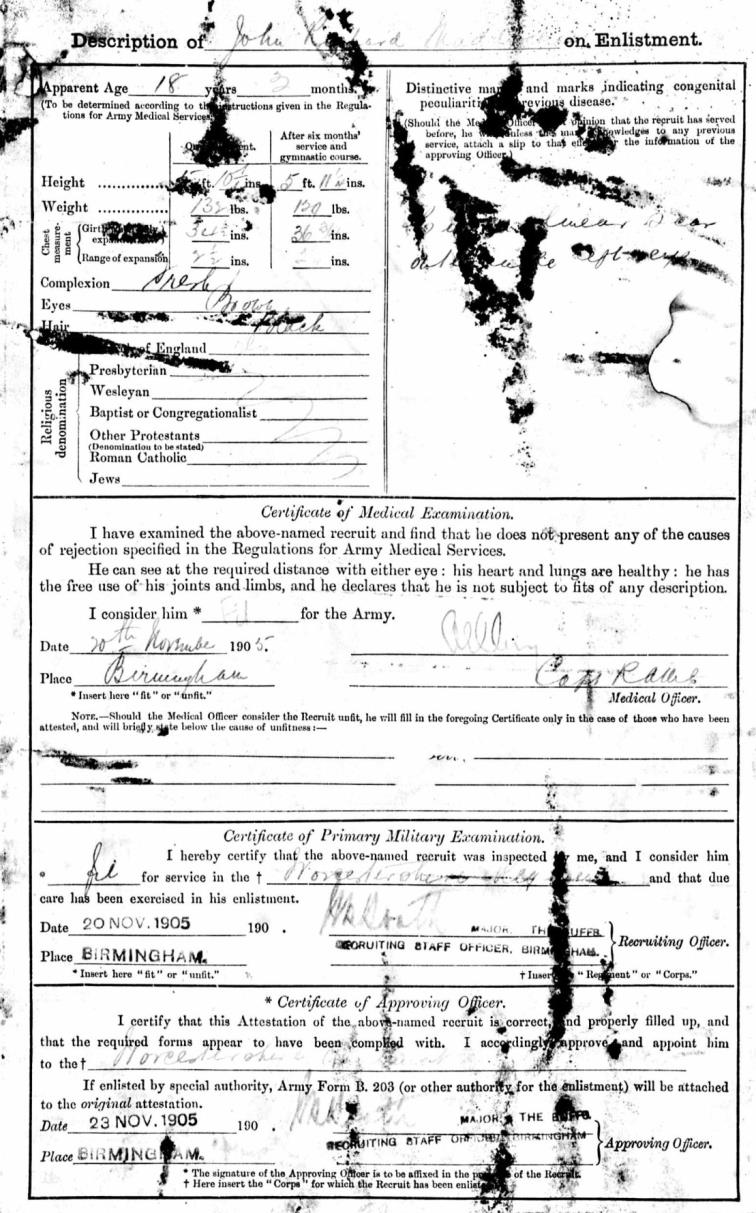 Description of John Richard on Enlistment.
Apparent Age 18 years 3 months.
(To be determined according to the instructions given in the Regulations for Army Medical Services.)
After six months' service and gymnastic course.
Height ft. ins. 5 ft. 11½ ins.
Weight 132 lbs. 130 lbs.
Chest measurement
Girth expanded 34½ ins. 36 ins.
Range of expansion 2½ ins. ins.
Complexion Fresh
Eyes Brown
Hair Black
Religious denomination
of England
Presbyterian
Wesleyan
Baptist or Congregationalist
Other Protestants
(Denomination to be stated)
Roman Catholic
Jews
Distinctive marks and marks indicating congenital
peculiarities previous disease.
(Should the Medical Officer opinion that the recruit has served
before, he will unless the man acknowledges to any previous
service, attach a slip to that effect for the information of the
approving Officer.)
Certificate of Medical Examination.
I have examined the above-named recruit and find that he does not present any of the causes
of rejection specified in the Regulations for Army Medical Services.
He can see at the required distance with either eye : his heart and lungs are healthy : he has
the free use of his joints and limbs, and he declares that he is not subject to fits of any description.
I consider him * Fit for the Army.
Date 20th November 1905.
Place Birmingham
* Insert here "fit" or "unfit."
Medical Officer.
NOTE.—Should the Medical Officer consider the Recruit unfit, he will fill in the foregoing Certificate only in the case of those who have been
attested, and will briefly state below the cause of unfitness :—
Certificate of Primary Military Examination.
I hereby certify that the above-named recruit was inspected by me, and I consider him
* fit for service in the † Worcestershire and that due
care has been exercised in his enlistment.
Date 20 NOV. 1905 190 .
MAJOR. THE BUFFS.
Place BIRMINGHAM.
RECRUITING STAFF OFFICER, BIRMINGHAM.
Recruiting Officer.
* Insert here "fit" or "unfit."
† Insert "Regiment" or "Corps."
* Certificate of Approving Officer.
I certify that this Attestation of the above-named recruit is correct, and properly filled up, and
that the required forms appear to have been complied with. I accordingly approve, and appoint him
to the † Worcestershire
If enlisted by special authority, Army Form B. 203 (or other authority for the enlistment) will be attached
to the original attestation.
Date 23 NOV. 1905 190 .
MAJOR. THE BUFFS.
Place BIRMINGHAM.
RECRUITING STAFF OFFICER BIRMINGHAM
Approving Officer.
* The signature of the Approving Officer is to be affixed in the presence of the Recruit.
† Here insert the "Corps" for which the Recruit has been enlisted.